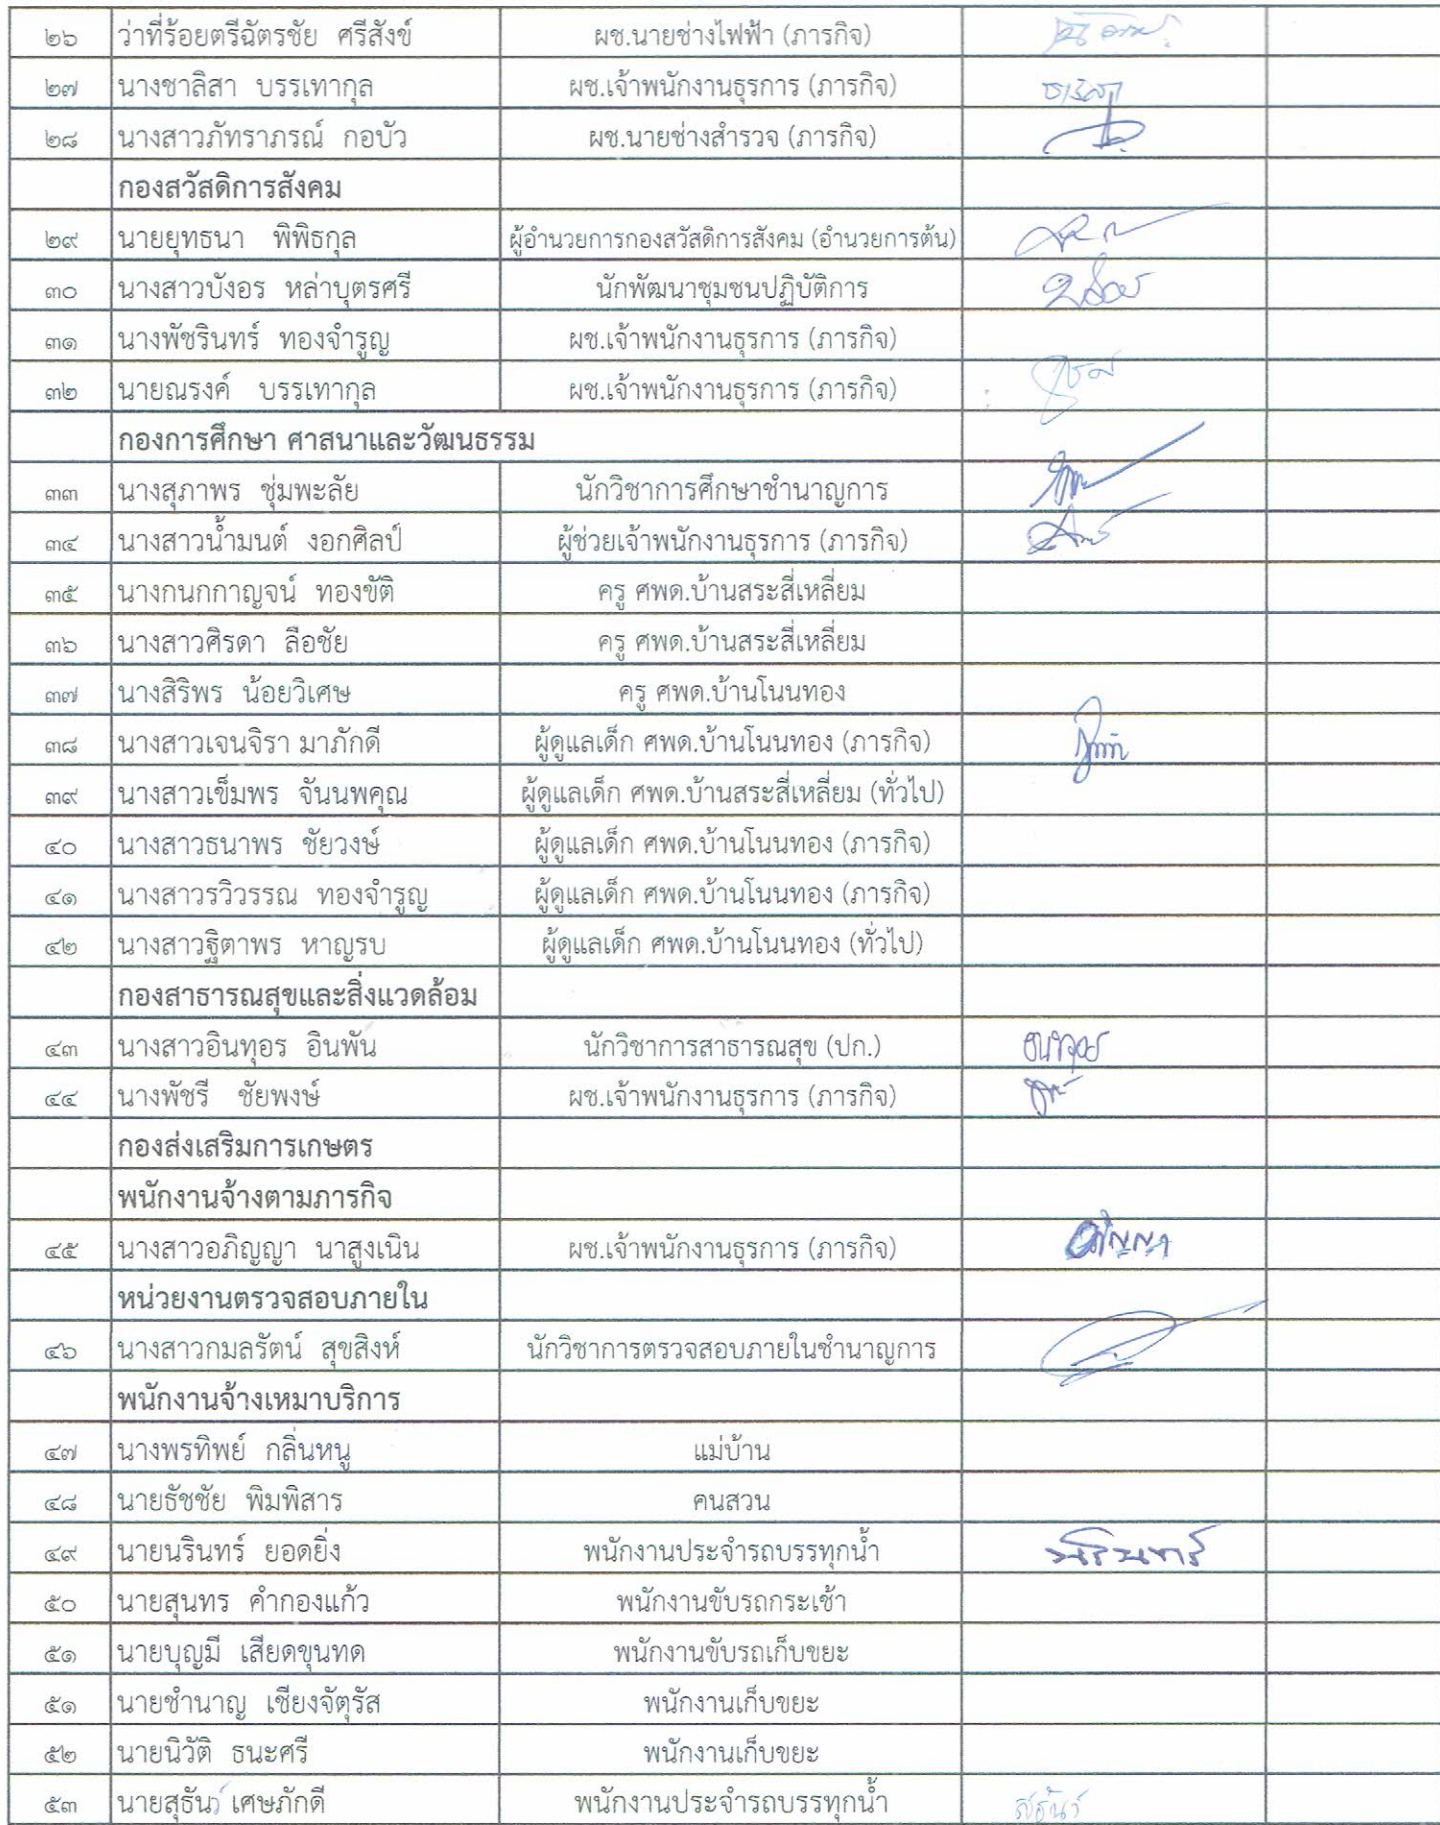 ๒๖ ว่าที่ร้อยตรีฉัตรชัย ศรีสังข์ ผช.นายช่างไฟฟ้า (ภารกิจ)
๒๗ นางชาลิสา บรรเทากุล ผช.เจ้าพนักงานธุรการ (ภารกิจ) ชาลิสา
๒๘ นางสาวภัทราภรณ์ กอบัว ผช.นายช่างสำรวจ (ภารกิจ)
กองสวัสดิการสังคม
๒๙ นายยุทธนา พิพิธกุล ผู้อำนวยการกองสวัสดิการสังคม (อำนวยการต้น)
๓๐ นางสาวบังอร หล่าบุตรศรี นักพัฒนาชุมชนปฏิบัติการ
๓๑ นางพัชรินทร์ ทองจำรูญ ผช.เจ้าพนักงานธุรการ (ภารกิจ)
๓๒ นายณรงค์ บรรเทากุล ผช.เจ้าพนักงานธุรการ (ภารกิจ)
กองการศึกษา ศาสนาและวัฒนธรรม
๓๓ นางสุภาพร ชุ่มพะลัย นักวิชาการศึกษาชำนาญการ
๓๔ นางสาวน้ำมนต์ งอกศิลป์ ผู้ช่วยเจ้าพนักงานธุรการ (ภารกิจ)
๓๕ นางกนกกาญจน์ ทองขัติ ครู ศพด.บ้านสระสี่เหลี่ยม
๓๖ นางสาวศิรดา ลือชัย ครู ศพด.บ้านสระสี่เหลี่ยม
๓๗ นางสิริพร น้อยวิเศษ ครู ศพด.บ้านโนนทอง
๓๘ นางสาวเจนจิรา มาภักดี ผู้ดูแลเด็ก ศพด.บ้านโนนทอง (ภารกิจ)
๓๙ นางสาวเข็มพร จันนพคุณ ผู้ดูแลเด็ก ศพด.บ้านสระสี่เหลี่ยม (ทั่วไป)
๔๐ นางสาวธนาพร ชัยวงษ์ ผู้ดูแลเด็ก ศพด.บ้านโนนทอง (ภารกิจ)
๔๑ นางสาวรวิวรรณ ทองจำรูญ ผู้ดูแลเด็ก ศพด.บ้านโนนทอง (ภารกิจ)
๔๒ นางสาวฐิตาพร หาญรบ ผู้ดูแลเด็ก ศพด.บ้านโนนทอง (ทั่วไป)
กองสาธารณสุขและสิ่งแวดล้อม
๔๓ นางสาวอินทุอร อินพัน นักวิชาการสาธารณสุข (ปก.) อินทุอร
๔๔ นางพัชรี ชัยพงษ์ ผช.เจ้าพนักงานธุรการ (ภารกิจ)
กองส่งเสริมการเกษตร
พนักงานจ้างตามภารกิจ
๔๕ นางสาวอภิญญา นาสูงเนิน ผช.เจ้าพนักงานธุรการ (ภารกิจ) อภิญญา
หน่วยงานตรวจสอบภายใน
๔๖ นางสาวกมลรัตน์ สุขสิงห์ นักวิชาการตรวจสอบภายในชำนาญการ
พนักงานจ้างเหมาบริการ
๔๗ นางพรทิพย์ กลิ่นหนู แม่บ้าน
๔๘ นายธัชชัย พิมพิสาร คนสวน
๔๙ นายนรินทร์ ยอดยิ่ง พนักงานประจำรถบรรทุกน้ำ นรินทร์
๕๐ นายสุนทร คำกองแก้ว พนักงานขับรถกระเช้า
๕๑ นายบุญมี เสียดขุนทด พนักงานขับรถเก็บขยะ
๕๑ นายชำนาญ เชียงจัตุรัส พนักงานเก็บขยะ
๕๒ นายนิวัติ ธนะศรี พนักงานเก็บขยะ
๕๓ นายสุธันว์ เศษภักดี พนักงานประจำรถบรรทุกน้ำ สุธันว์